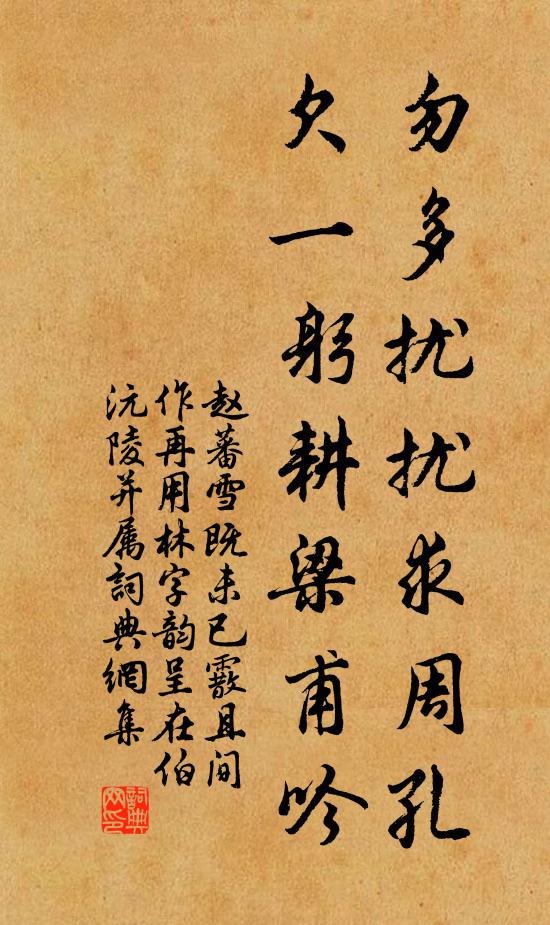 勿多扰扰求周孔
欠一躬耕梁甫吟
赵蕃雪既未已霰且间
作再用林字韵呈在伯
沅陵并属詞典網集
詞典網印